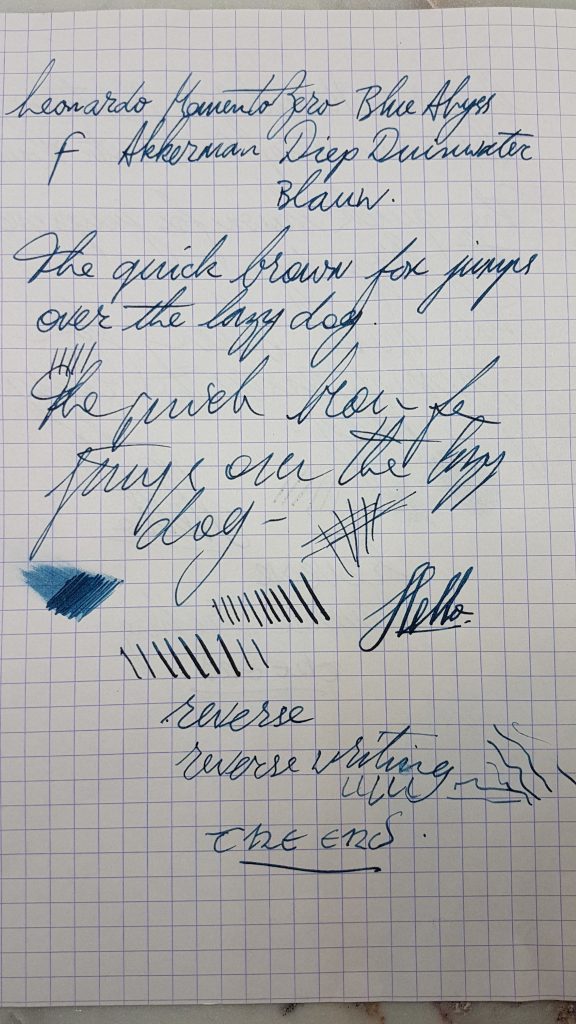 Leonardo Momento Zero Blue Abyss
f Akkerman Diep Duinwater
Blauw.
The quick brown fox jumps
over the lazy dog.
The quick brown fo
jumps over the lazy
dog-
Hello.
reverse
reverse writing
THE END.